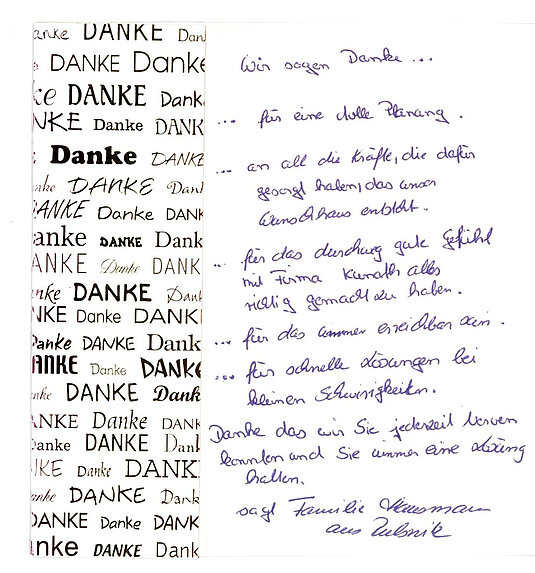 Danke DANKE Dan
DANKE Danke
ke DANKE Dank
NKE Danke DANK
Danke DANKE
nke DANKE Dank
DANKE Danke DANK
anke DANKE Dank
ANKE Danke DANK
nke DANKE Dan
NKE Danke DANK
Danke DANKE Dank
DANKE Danke DANKE
nke DANKE Dank
ANKE Danke DANK
Danke DANKE Dank
NKE Danke DANK
anke DANKE Dank
DANKE Danke DANK
nke DANKE Dank
Wir sagen Danke...
... für eine tolle Planung.
... an all die Kräfte, die dafür
gesorgt haben, das unser
Wunschhaus entsteht.
... für das durchweg gute Gefühl
mit Firma Kunath alles
richtig gemacht zu haben.
... für das immer erreichbar sein.
... für schnelle Lösungen bei
kleinen Schwirigkeiten.
Danke das wir Sie jederzeit nerven
konnten und Sie immer eine Lösung
hatten.
sagt Familie
aus